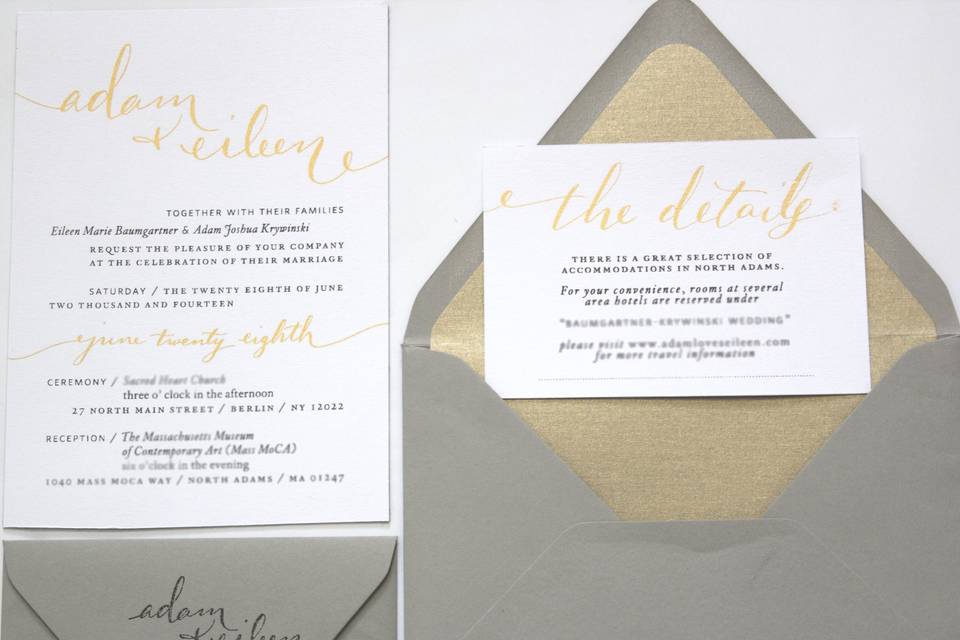 adam
& eileen
TOGETHER WITH THEIR FAMILIES
Eileen Marie Baumgartner & Adam Joshua Krywinski
REQUEST THE PLEASURE OF YOUR COMPANY
AT THE CELEBRATION OF THEIR MARRIAGE
SATURDAY / THE TWENTY EIGHTH OF JUNE
TWO THOUSAND AND FOURTEEN
june twenty eighth
CEREMONY / Sacred Heart Church
three o' clock in the afternoon
27 NORTH MAIN STREET / BERLIN / NY 12022
RECEPTION / The Massachusetts Museum
of Contemporary Art (Mass MoCA)
six o'clock in the evening
1040 MASS MOCA WAY / NORTH ADAMS / MA 01247
the details:
THERE IS A GREAT SELECTION OF
ACCOMMODATIONS IN NORTH ADAMS.
For your convenience, rooms at several
area hotels are reserved under
"BAUMGARTNER-KRYWINSKI WEDDING"
please visit www.adamloveseileen.com
for more travel information
adam
& eileen